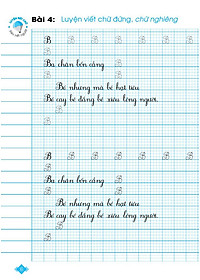 Bài 4: Luyện viết chữ đứng, chữ nghiêng
B B B B B B B
B
Ba chân bốn cẳng B B
B
Bé nhưng mà bé hạt tiêu
Bé cay bé đắng bé xiêu lòng người.
B
B
B B B B B B B
B
Ba chân bốn cẳng B B
B
Bé nhưng mà bé hạt tiêu
Bé cay bé đắng bé xiêu lòng người.
B
B